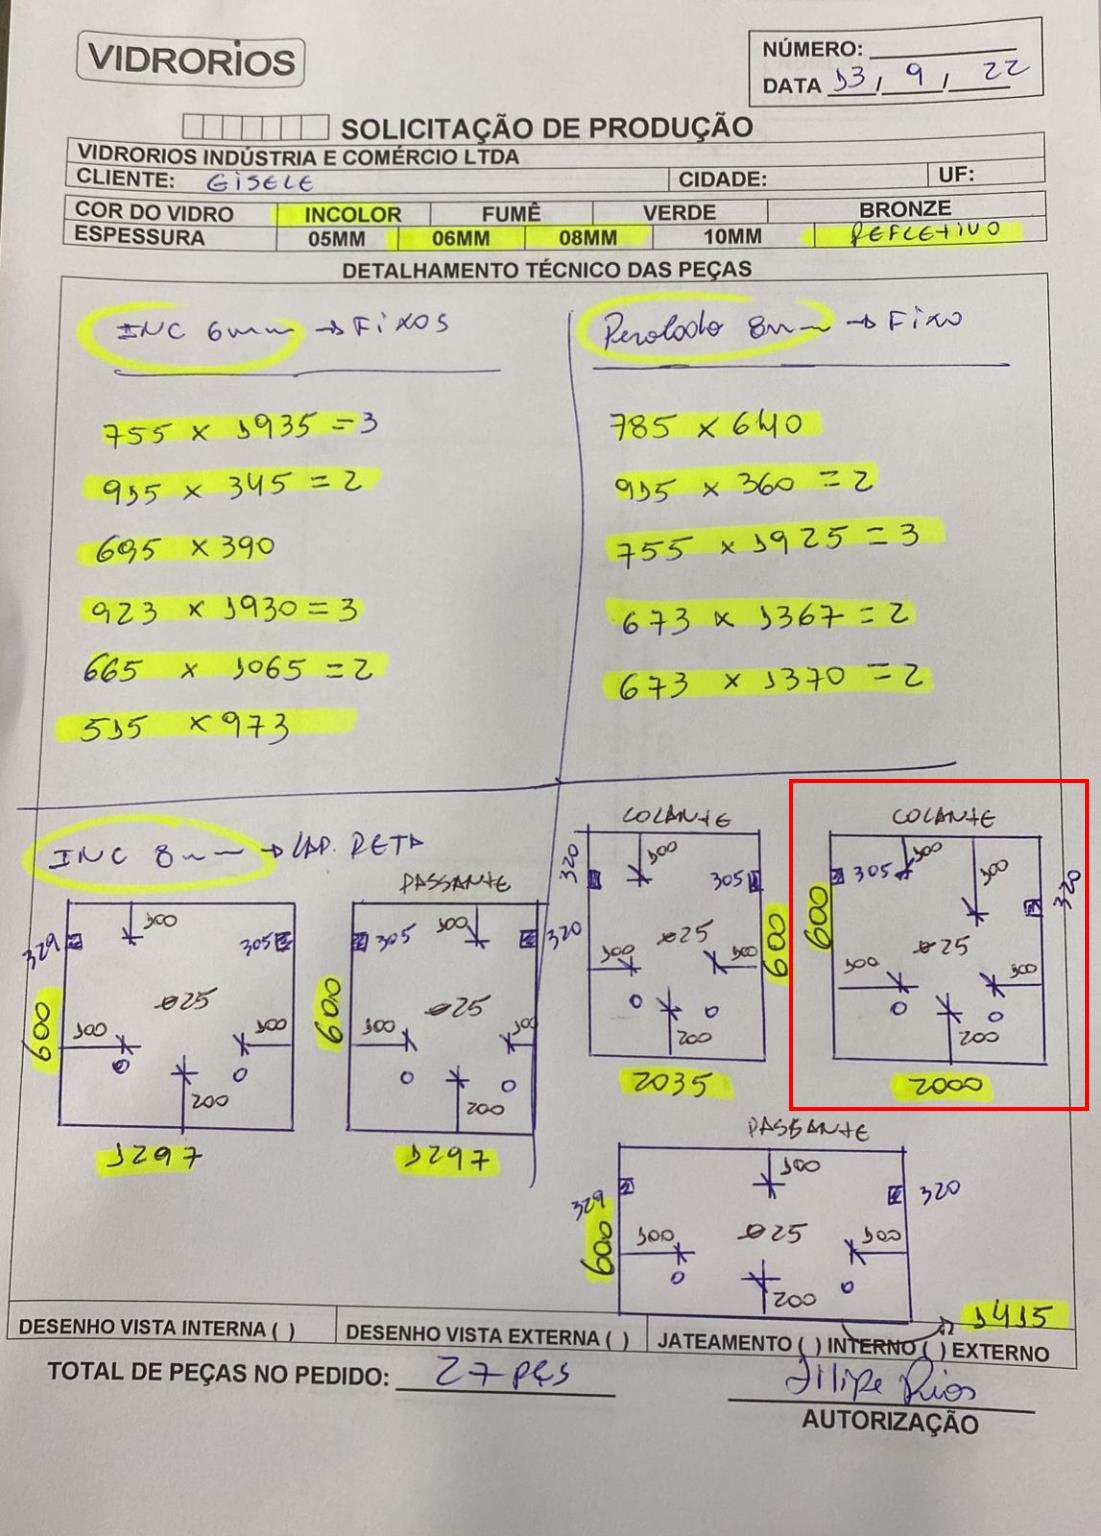 VIDRORIOS
NÚMERO:
DATA 13 / 9 / 22
SOLICITAÇÃO DE PRODUÇÃO
VIDRORIOS INDÚSTRIA E COMÉRCIO LTDA
CLIENTE: GISELE CIDADE: UF:
COR DO VIDRO INCOLOR FUMÊ VERDE BRONZE
ESPESSURA 05MM 06MM 08MM 10MM REFLETIVO
DETALHAMENTO TÉCNICO DAS PEÇAS
INC 6mm → FIXOS
755 x 1935 = 3
915 x 345 = 2
695 x 390
923 x 1930 = 3
665 x 1065 = 2
515 x 973
Perolado 8mm → FIXO
785 x 640
915 x 360 = 2
755 x 1925 = 3
673 x 1367 = 2
673 x 1370 = 2
INC 8mm → LAP. RETA
329 100 305
600 100 ø25 100
200
1297
PASSANTE
305 100 320
600 100 ø25 100
200
1297
COLANTE
320 100 305
100 ø25 100 600
200
2035
COLANTE
305 100 100 320
600 100 ø25 100
200
2000
PASSANTE
329 100 320
600 100 ø25 100
200
1415
DESENHO VISTA INTERNA ( ) DESENHO VISTA EXTERNA ( ) JATEAMENTO ( ) INTERNO ( ) EXTERNO
TOTAL DE PEÇAS NO PEDIDO: 27 PÇS
Filipe Rios
AUTORIZAÇÃO